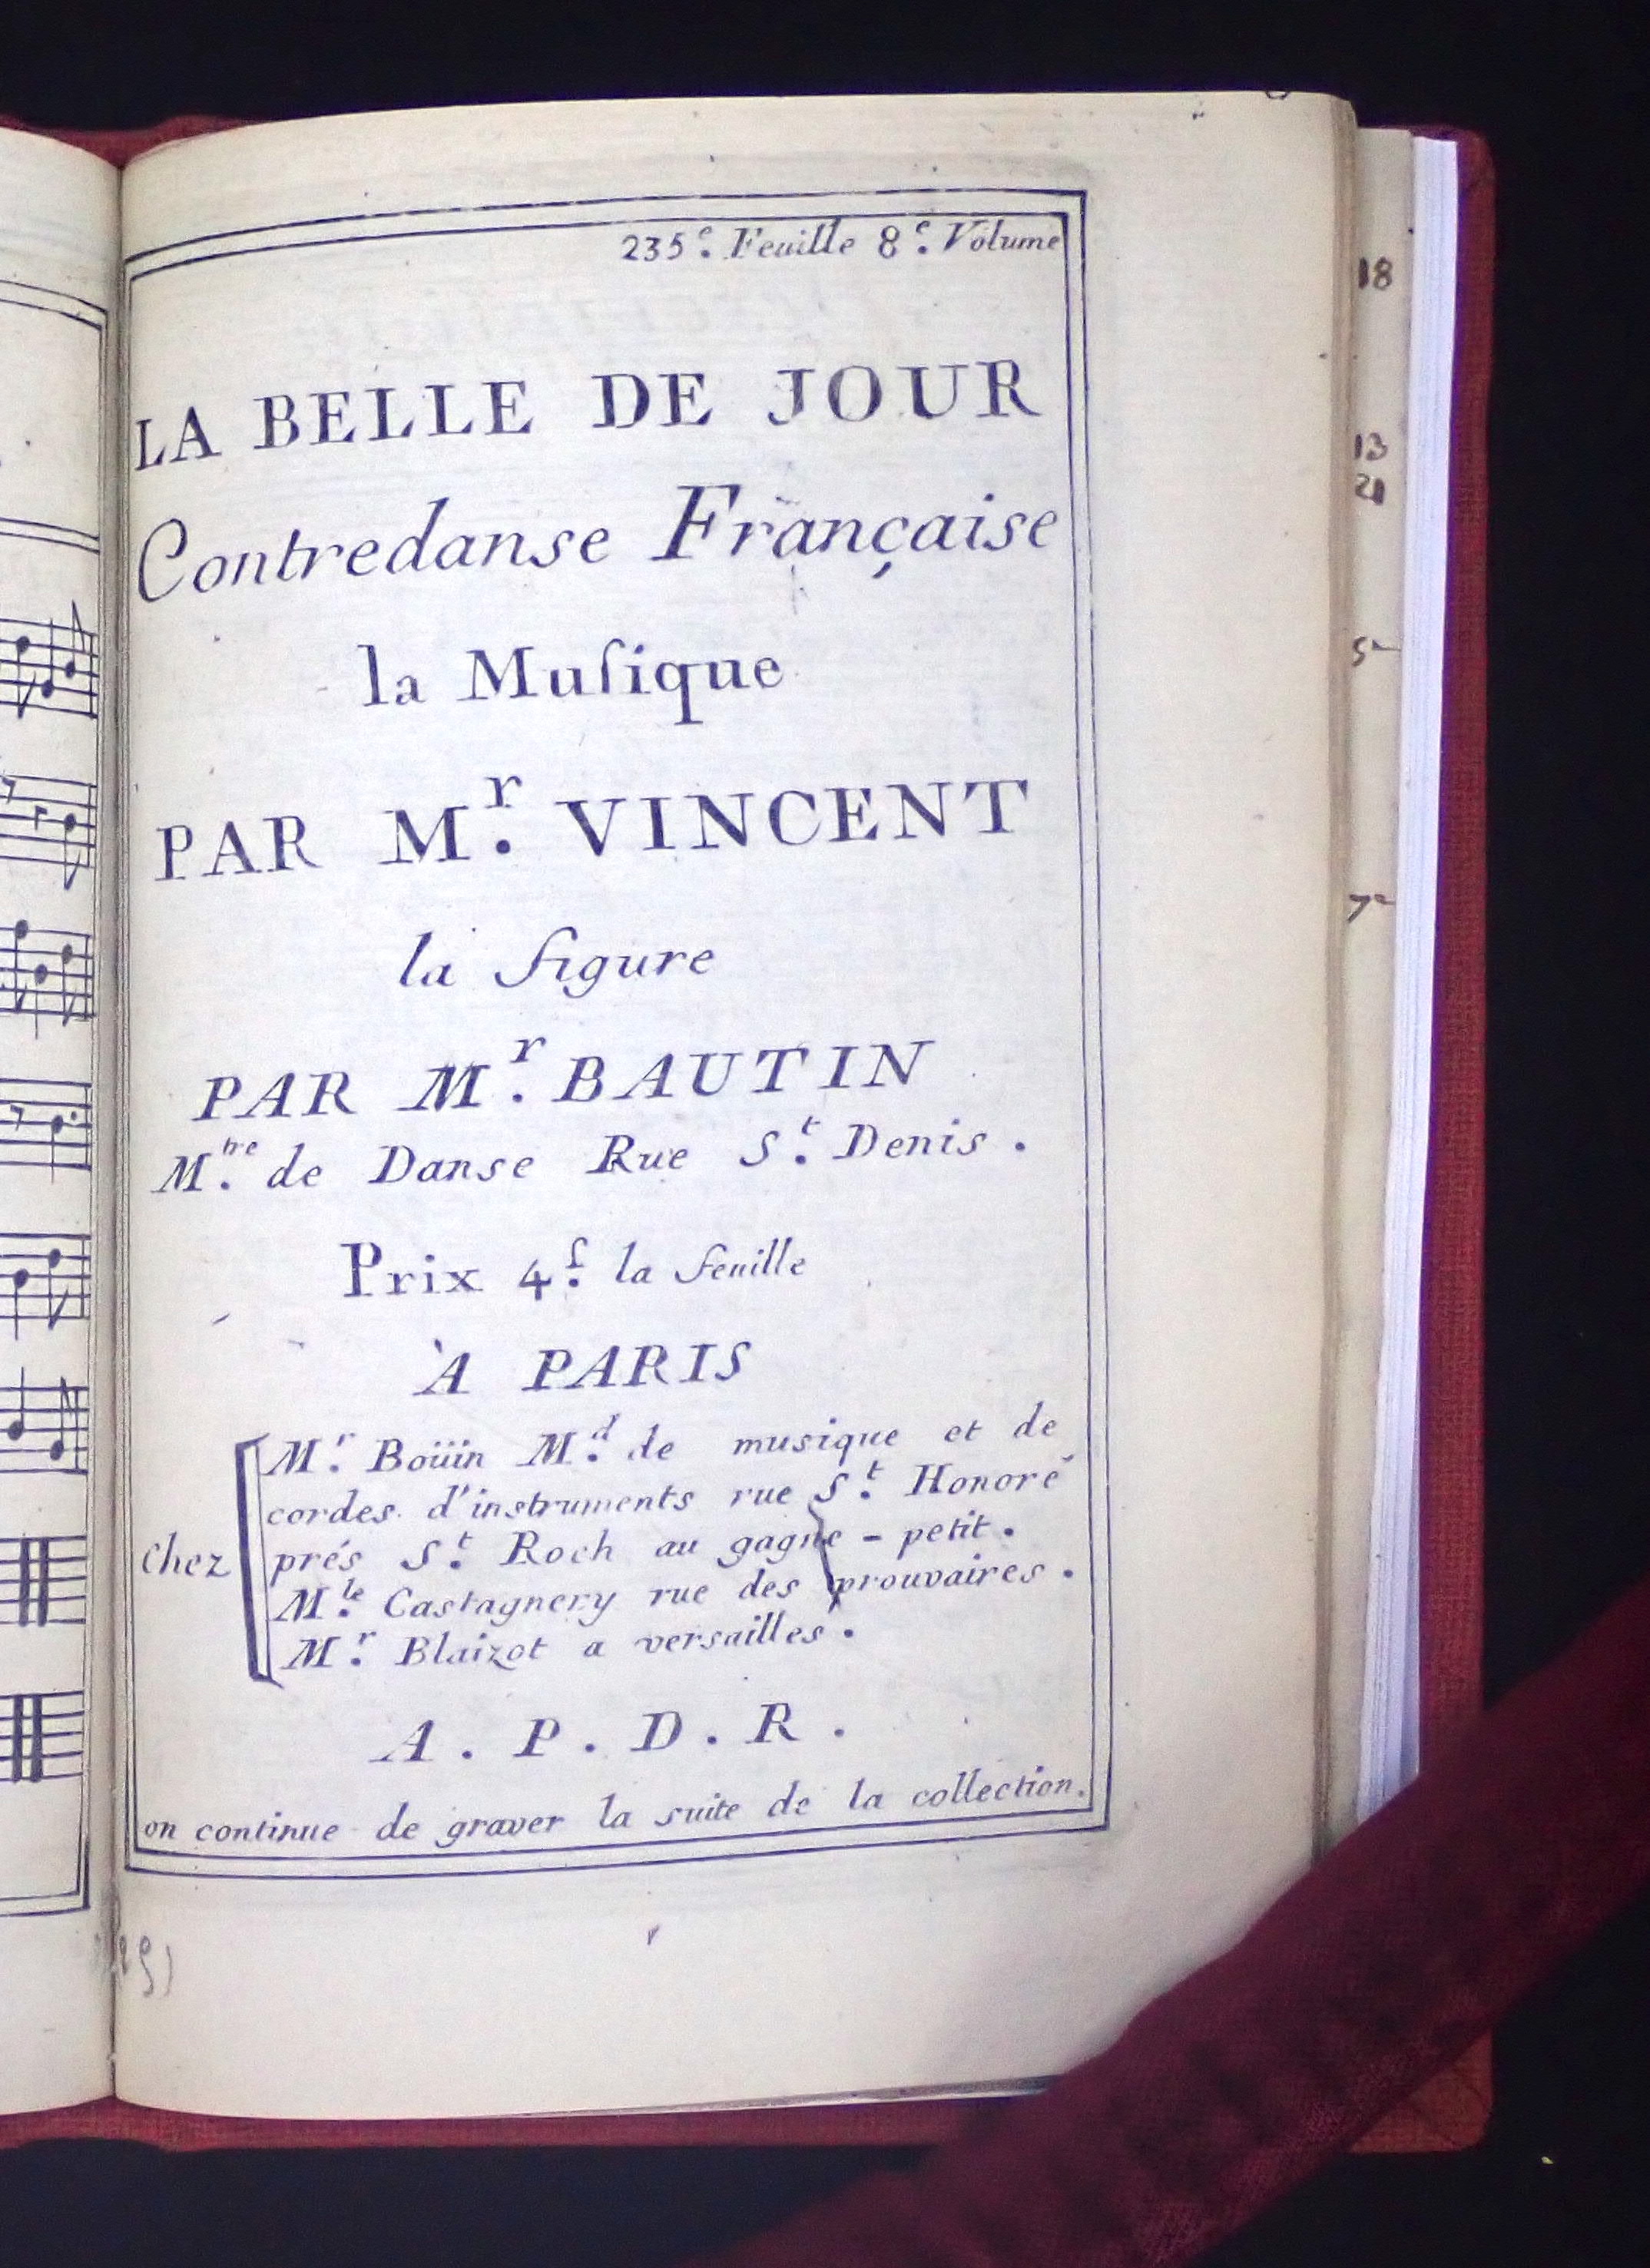 235.e Feuille 8.e Volume
LA BELLE DE JOUR
Contredanse Française
la Muſique
PAR M.r VINCENT
la figure
PAR M.r BAUTIN
M.tre de Danse Rue S.t Denis.
Prix 4.ſ la feuille
À PARIS
chez
M.r Boüin M.d de musique et de
cordes d'instruments rue S.t Honoré
prés S.t Roch au gagne-petit.
M.le Castagnery rue des prouvaires.
M.r Blaizot a versailles.
A. P. D. R.
on continue de graver la suite de la collection.
18
13
21